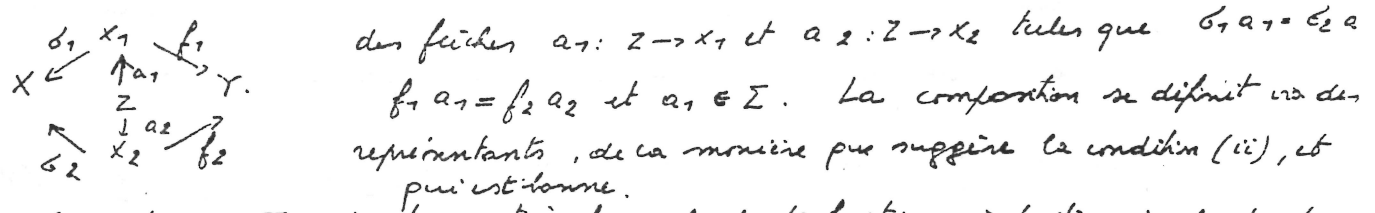 σ1 X1 f1
X a1 Y.
Z
a2
σ2 X2 f2
des flèches a1 : Z → X1 et a2 : Z → X2 telles que σ1 a1 = σ2 a
f1 a1 = f2 a2 et a1 ∈ Σ. La composition se définit via des
représentants, de la manière que suggère la condition (ii), et
qui est bonne.